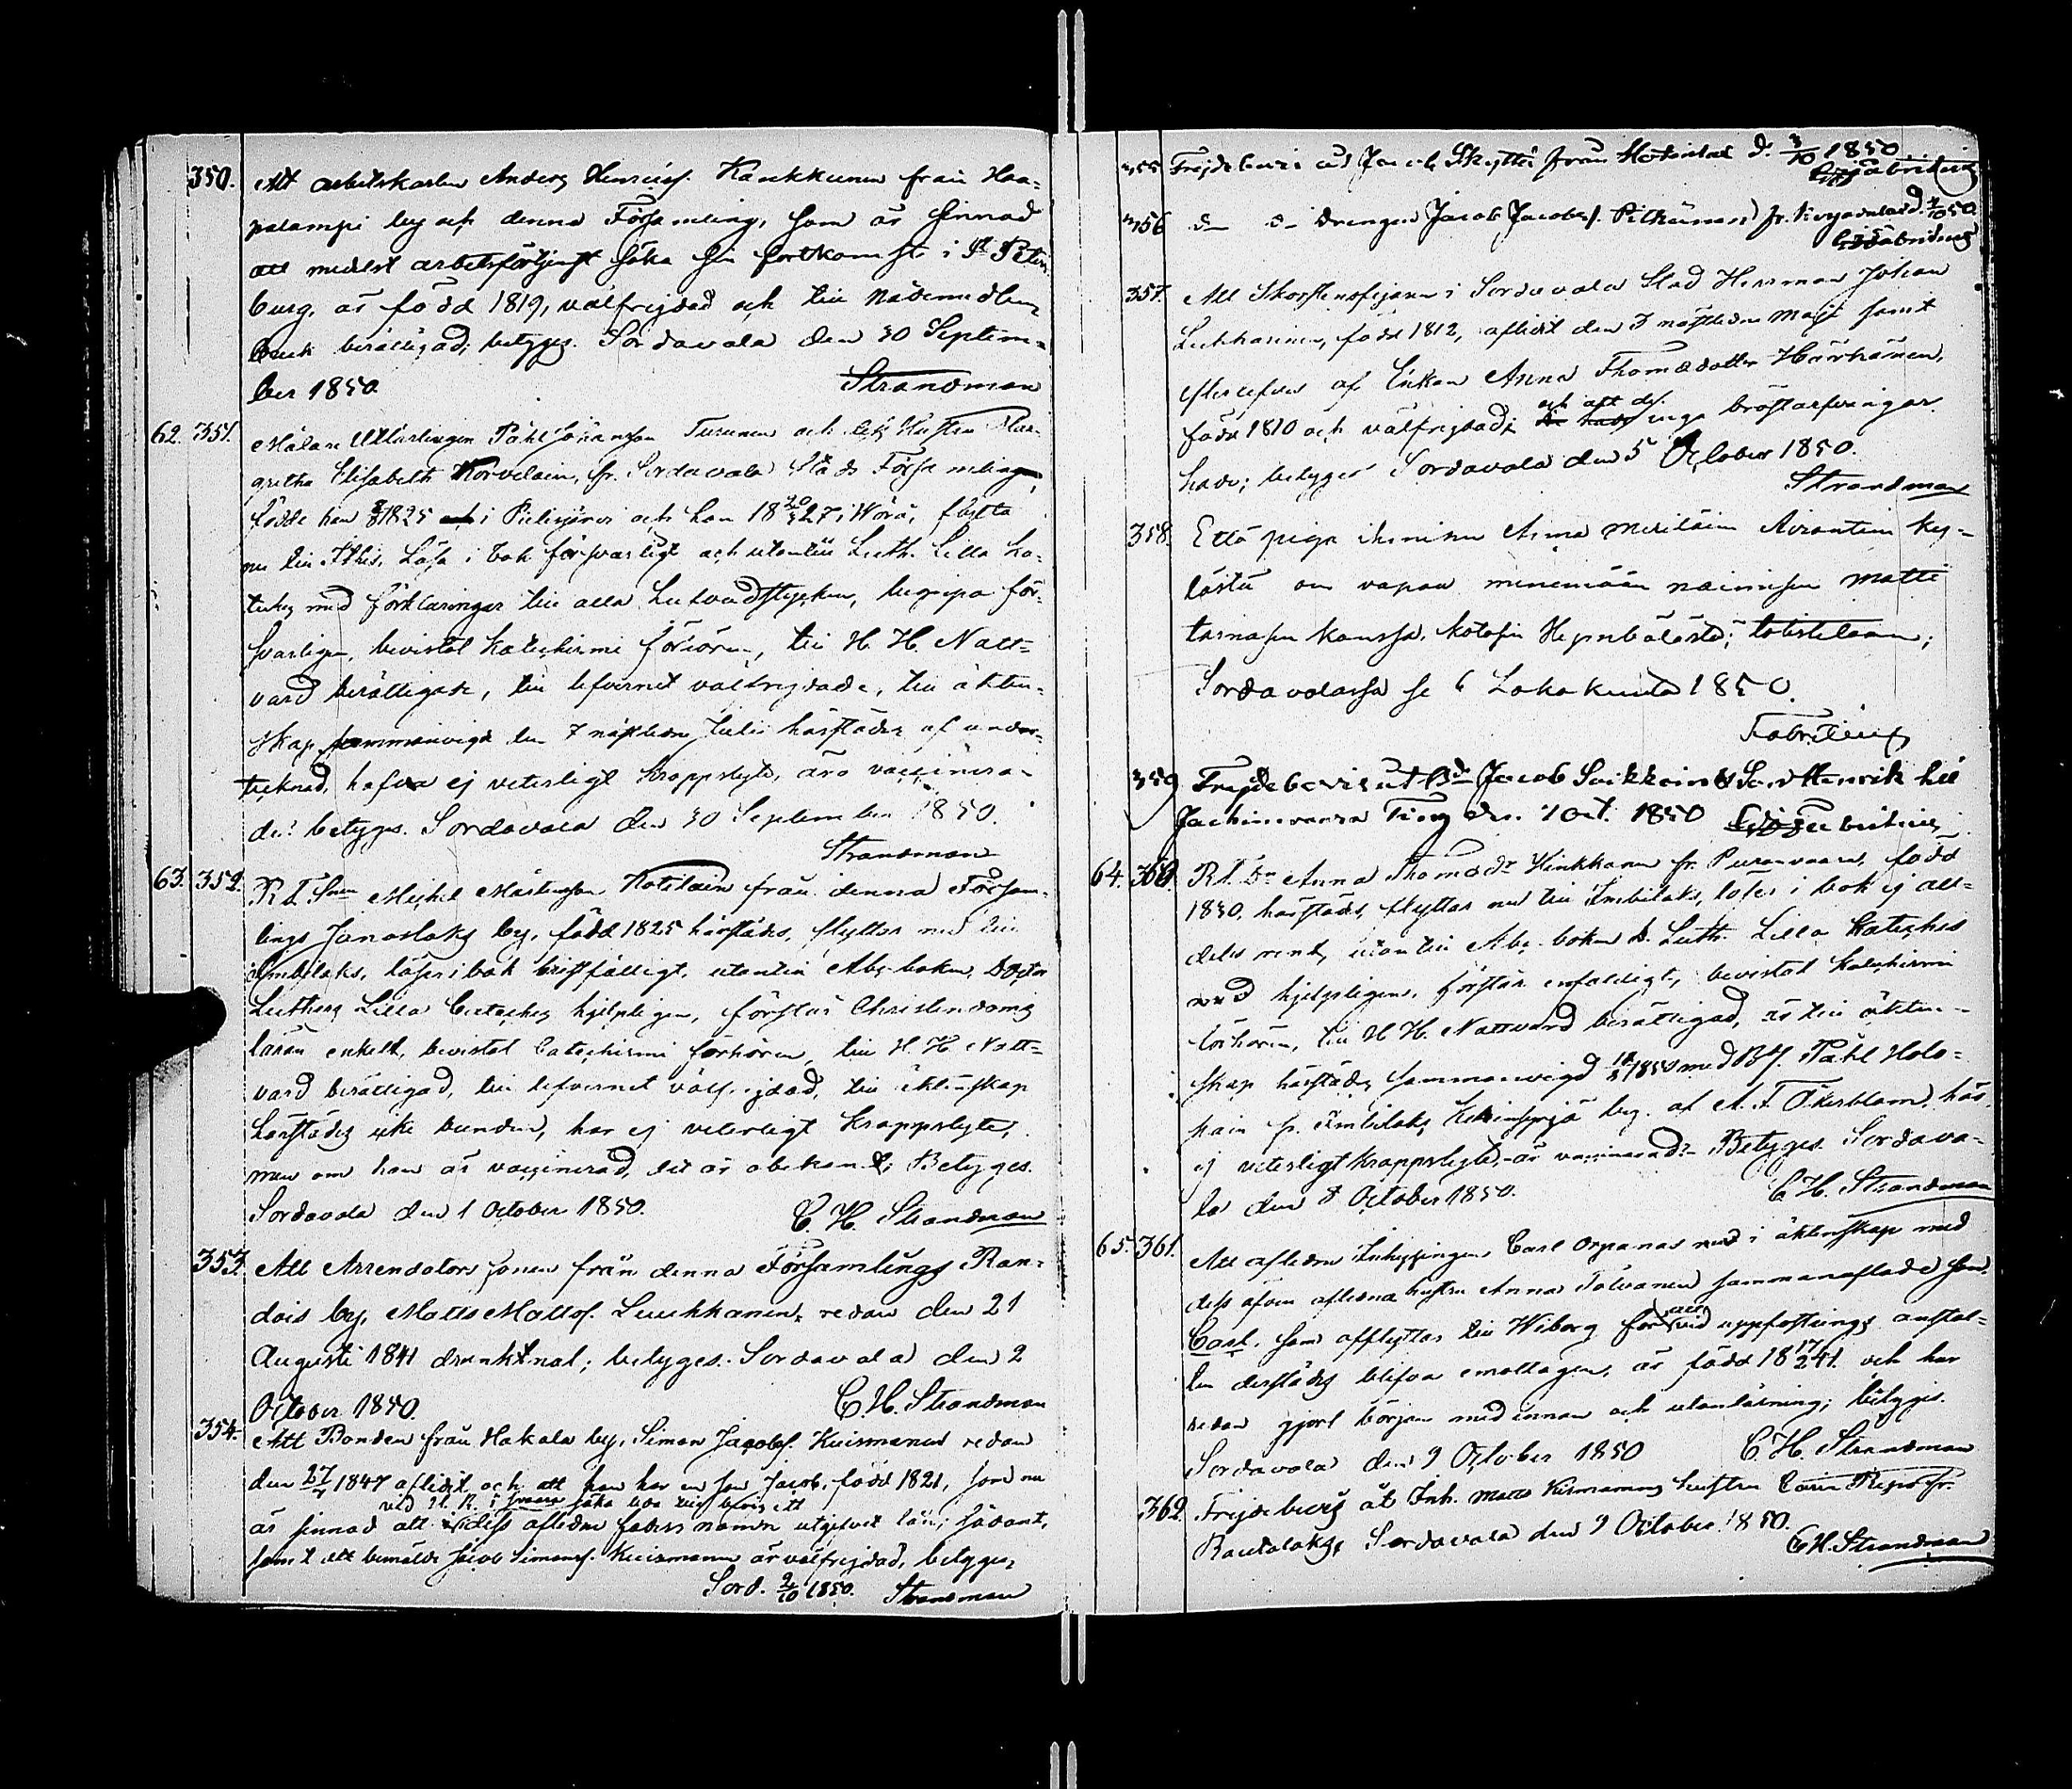 350. Att arbetskarlen Anders Henricss. Karukkunen från Haa-
palampi by af denna Församling, som är sinnad
att medelst arbetsförtjenst söka sin fortkomst i St Peters-
burg, är född 1819, välfrejdad och till Nådemedlens
bruk berättigad; betyges. Sordavala den 30 Septem-
ber 1850. Strandman
62. 351. Målare Lärlingen Påhl Johansson Turunen och dess Hustru Mar-
gretha Elisabeth Korvelain, fr. Sordavala Stads Församlingen,
födde han 1825 i Pielisjärvi och hon 1827 i Wörå, flytta
nu till Läsa i bok försvarligt och utantill Luth. Lilla Ka-
teches med förklaringar till alla hufvudstycken, begripa för-
svarligen, bevistat Katechismi förhören, till H. H. Natt-
vard berättigade, till lefvernet välfrejdade, till äkten-
skap sammanvigde den 7 nästledne Julii härstädes af under-
tecknad, hafva ej veterligt kroppslyte, äro vaccinera-
de: betyges. Sordavala den 30 September 1850.
Strandman
63. 352. Michel Mårtensson Kotilain från denna Försam-
lings Janaslaks by, född 1825 härstädes, flyttar nu till
Imbilaks, läser i bok bristfälligt, utantill Abc-boken, Doctor
Luthers Lilla Cateches hjelpligen, förstår Christendoms
läran enkelt, bevistat Catechismi förhören, till H. H. Natt-
vard berättigad, till lefvernet välfrejdad, till äktenskap
härstädes icke bunden, har ej veterligt kroppslyte,
men om han är vaccinerad, det är obekant; Betyges.
Sordavala den 1 October 1850. C. H. Strandman
353. Att Arrendators sonen från denna Församlings Ran-
dois by, Matts Mattss. Leuchkanen, redan den 21
Augusti 1841 drunknat; betyges. Sordavala den 2
October 1850. C. H. Strandman
354. Att Bonden från Hakala by, Simon Jacobss. Kuismanen redan
den 27/7 1847 aflidit och att han har en son Jacob, född 1821, som nu
är sinnad att vid söka bevis ett
dess aflidne faders namn utgifvet lån; sådant,
samt att bemälde Jacob Simonss. Kuismanen är välfrejdad, betyges,
Sord. 2/10 1850. Strandman
355 Frejdebevis åt Jacob Skyttä från d. 3/10 1850
Fabritius
356 d– d– drengen Jacob Jacobss. Pitkänen fr. 50
Fabritius
357. Att Skorstensfejaren i Sordavala Stad Herrman Johan
Leuhkainen, född 1812, aflidit den 3 nästledne Maji samt
efterlefves af Enkan Anna Thomædotter Härkänen,
född 1810 och välfrejdad; och att de inga bröstarfvingar
hade; betyges Sordavala den 5 October 1850.
Strandman
358. Että piga ihminen Anna Meriläin Airanteen ky-
lästä on vapaa menemään naimisen Matti
kanssa, kotosin Hepnbälästä; totistetaan;
Sordavalassa se 6 Lokakuuta 1850.
Fabritius
359 Frejdebevis åt Bd Jacob Suikkain & Son Henrik till
Jachimvaara Ting den 7 Oct. 1850 Fabritius
64. 360. Anna Thomæ dr Hinkkanen fr. född
1830. härstädes, flyttar nu till Imbilaks, läser i bok ej all-
deles rent, utantill Abc boken D. Luth. Lilla Kateches
med hjelpligen, förstår enfaldigt, bevistat Katechismi
förhören, till H H. Nattvard berättigad, är till äkten-
skap härstädes sammanvigd 1850 med Påhl Holo-
pain fr. Imbilaks by. af A. F. Åkerblom, har
ej veterligt kroppslyte, är vaccinerad:– Betyges. Sordava-
la den 8 October 1850. C. H. Strandman
65. 361. Att aflidne Inhysingen Carl Orpanas med i äktenskap med
dess äfven aflidna hustru Anna Tolvanen sammanaflade son
Carl, som afflyttar till Wiborg för att vid uppfostrings anstal-
ten derstädes blifva emottagen, är född 18 17/2 41. och har
redan gjort början med innan och utanläsning; betyges.
Sordavala den 9 October 1850 C. H. Strandman
362. Frejdebevis åt Inh. Matts Kinnanens hustru Carin fr.
Rautalaks, Sordavala den 9 October 1850.
C H. Strandman